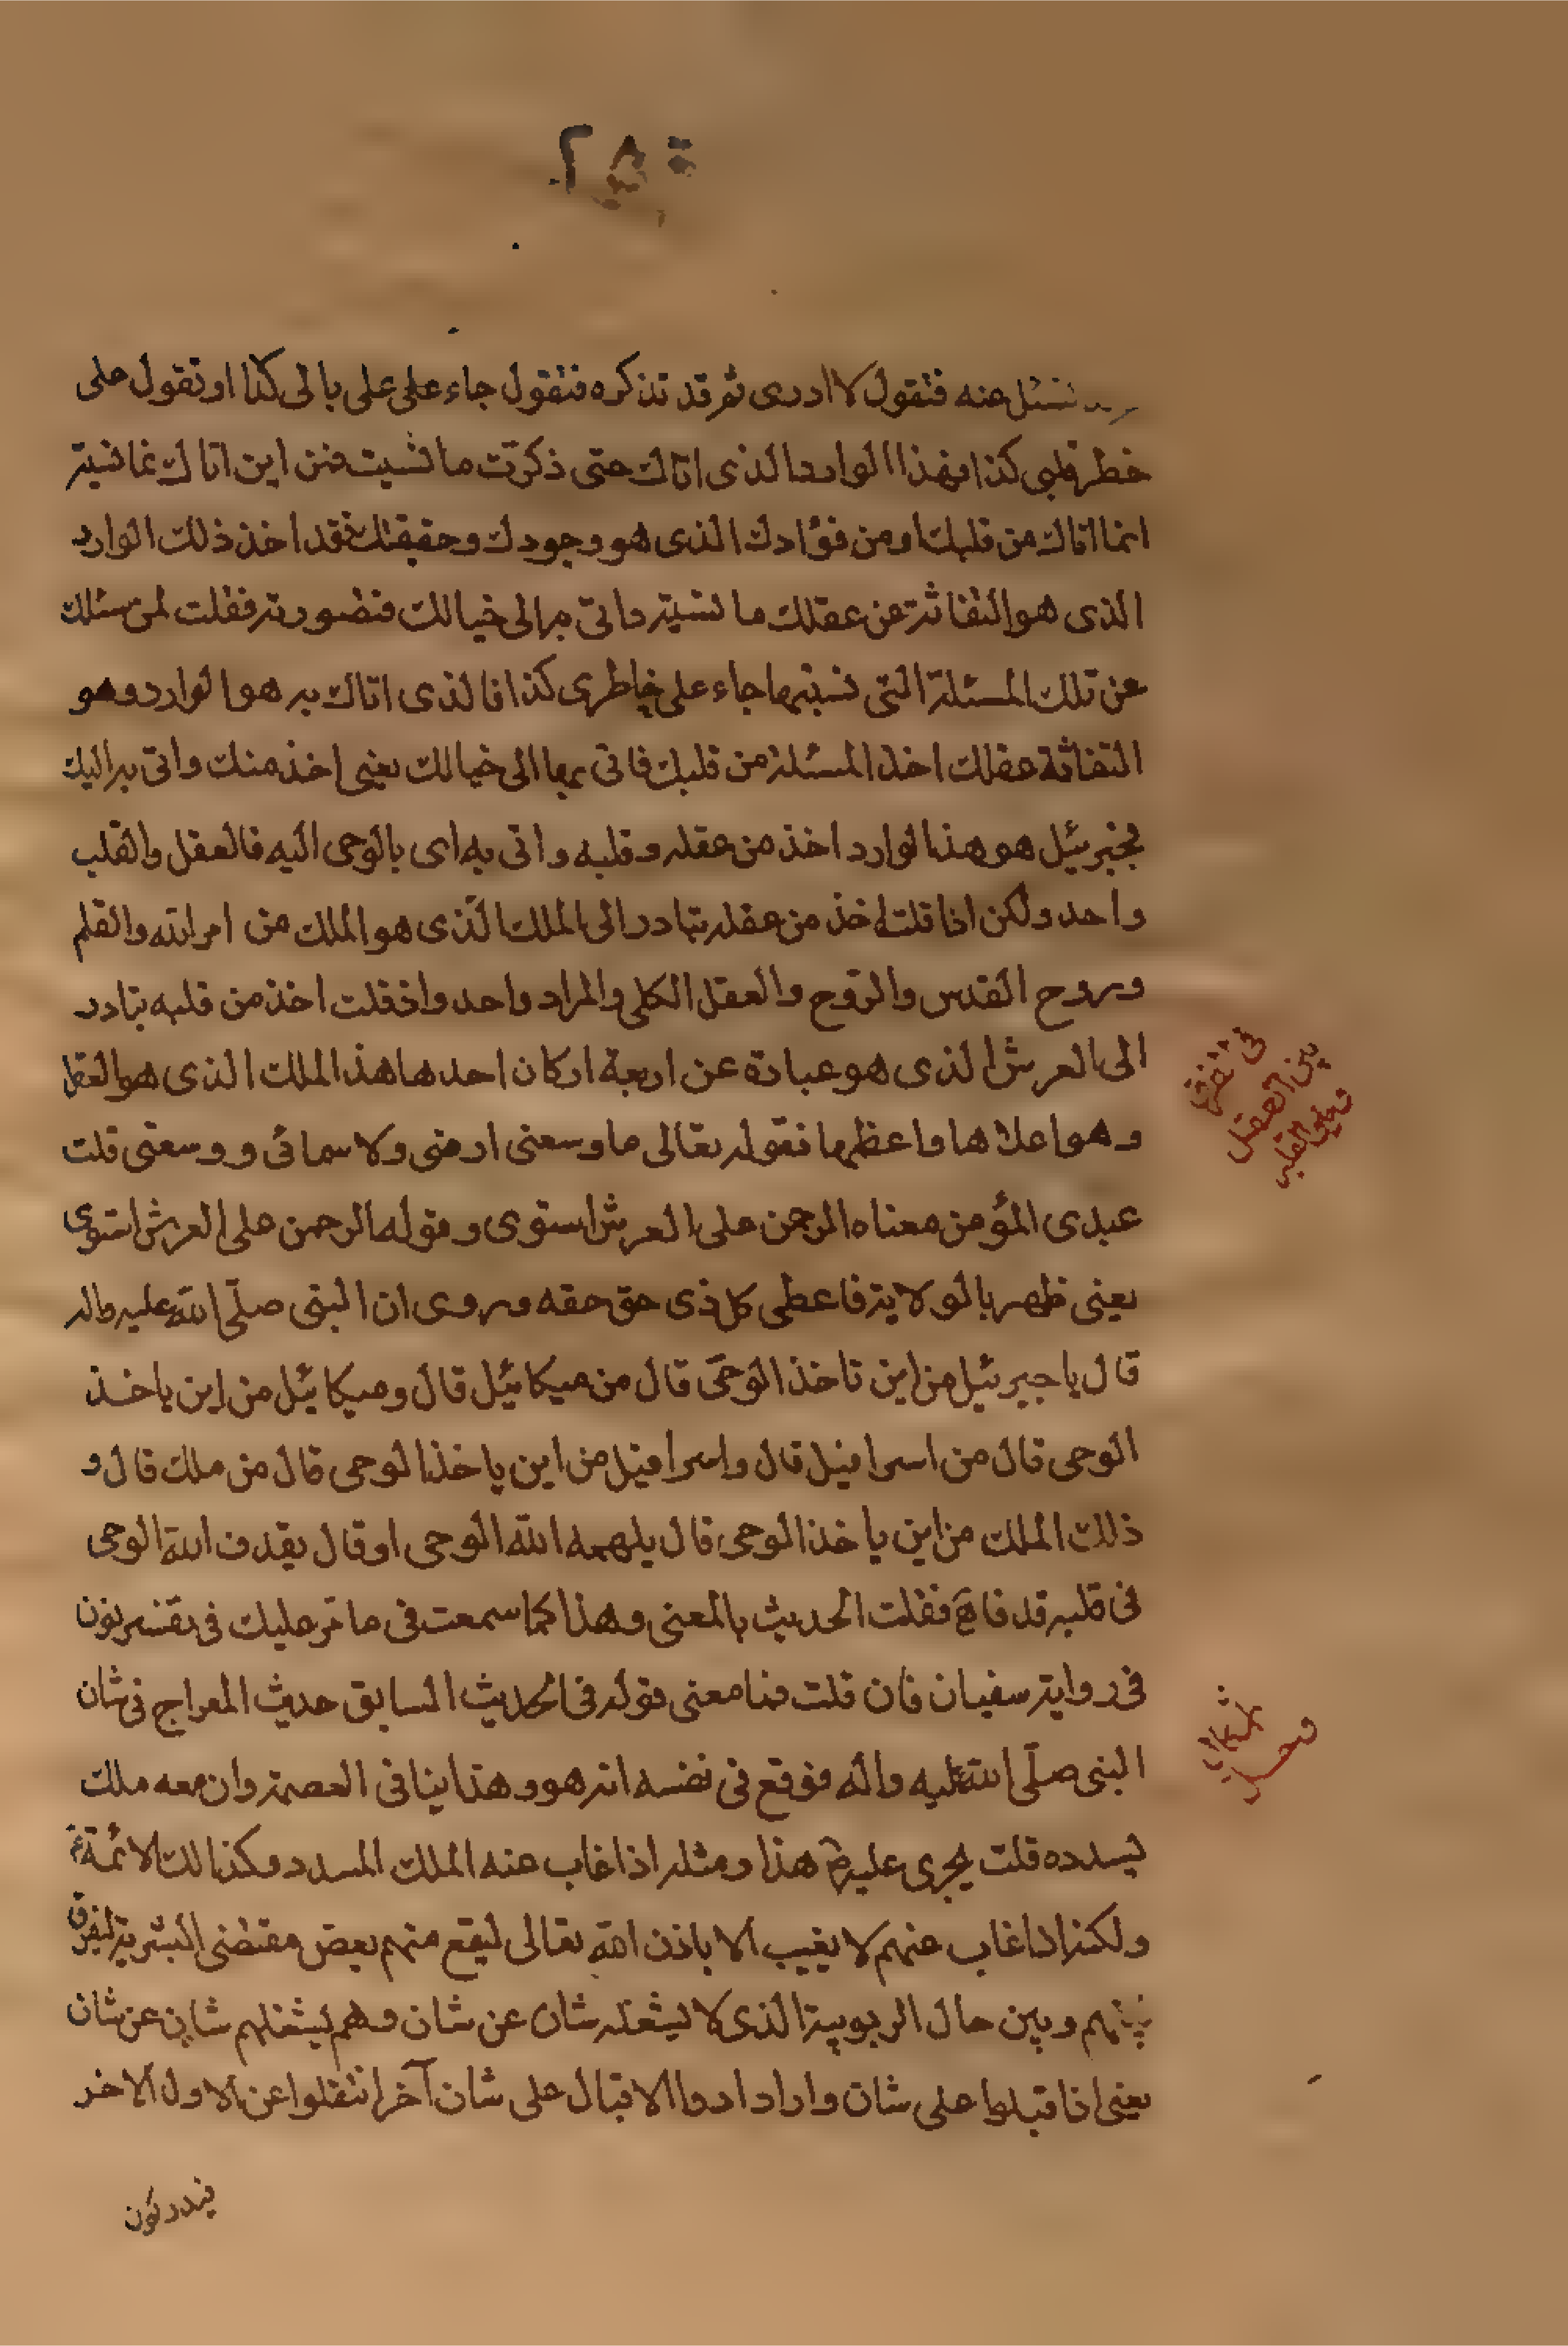 نسئل عنه فتقول لا ادرى ثم قد تذكره فتقول جاء على على بالى كذا او تقول على
خطر قلبى كذا فهذا الوارد الذى اتاك حتى ذكرت ما نسيت فمن اين اتاك نما نسيته
انما اتاك من قلبك او من فؤادك الذى هو وجودك وحقيقتك فقد اخذ ذلك الوارد
الذى هو التفاثة عن عقلك ما نسيته واتى به الى خيالك فتصورته فقلت لمن سئلك
عن تلك المسئلة التى نسيتها جاء على خاطرى كذا فالذى اتاك به هو الوارد وهو
التفاثة عقلك اخذ المسئلة من قلبك فاتى بها الى خيالك يعنى اخذ منك واتى به اليك
فجبرئيل هو هذا الوارد اخذ من عقله وقلبه واتى به اى بالوحى اليه فالعقل والقلب
واحد ولكن اذا قلت اخذ من عقله تبادر الى الملك الّذى هو الملك من امر الله والقلم
وروح القدس والروح والعقل الكلى والمراد واحد واذ قلت اخذ من قلبه تبادر
الى العرش الذى هو عبارة عن اربعة اركان احدها هذا الملك الذى هو العقل
وهو اعلاها واعظمها فقوله تعالى ما وسعنى ارضى ولا سمائى و ووسعنى قلت
عبدى المؤمن معناه الرحمن على العرش استوى وقوله الرحمن على العرش استوى
يعنى ظهر بالولاية فاعطى كل ذى حق حقه وروى ان النبى صلّى الله عليه واله
قال يا جبرئيل من اين تاخذ الوحى قال من ميكائيل قال وميكائيل من اين ياخذ
الوحى قال من اسرافيل قال واسرافيل من اين ياخذ الوحى قال من ملك قال و
ذلك الملك من اين ياخذ الوحى قال يلهمه الله الوحى او قال يقذف الله الوحى
فى قلبه قذفا فقلت الحديث بالمعنى وهذا كما سمعت فى ما مر عليك فى تفسير نون
فى رواية سفيان فان قلت فما معنى قوله فى الحديث السابق حديث المعراج فى شان
النبى صلّى الله عليه واله فوقع فى نفسه انه هو وهذا ينافى العصمة وان معه ملك
يسدده قلت يجرى عليه هذا ومثله اذا غاب عنه الملك المسدد وكذالك الائمة
ولكنه اذا غاب عنهم لا يغيب الا باذن الله تعالى ليقع منهم بعض مقتضى البشرية ليفرق
بينهم وبين حال الربوبية الذى لا يشغله شان عن شان وهم يشغلهم شان عن شان
يعنى اذا اقبلوا على شان وارادوا الاقبال على شان آخر انتقلوا عن الاول الاخر
بين العقل